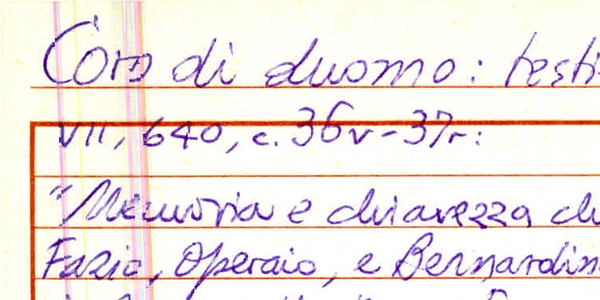 Coro di duomo: testi
VII, 640, c. 36v-37r:
"Memoria e chiarezza ch
Fazio, Operaio, e Bernardin